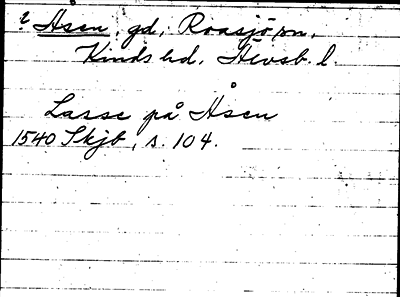 ? Åsen, gd, Roasjö sn,
Kinds hd, Älvsb. l.
Lasse på Åsen
1540 Skjb, s. 104.